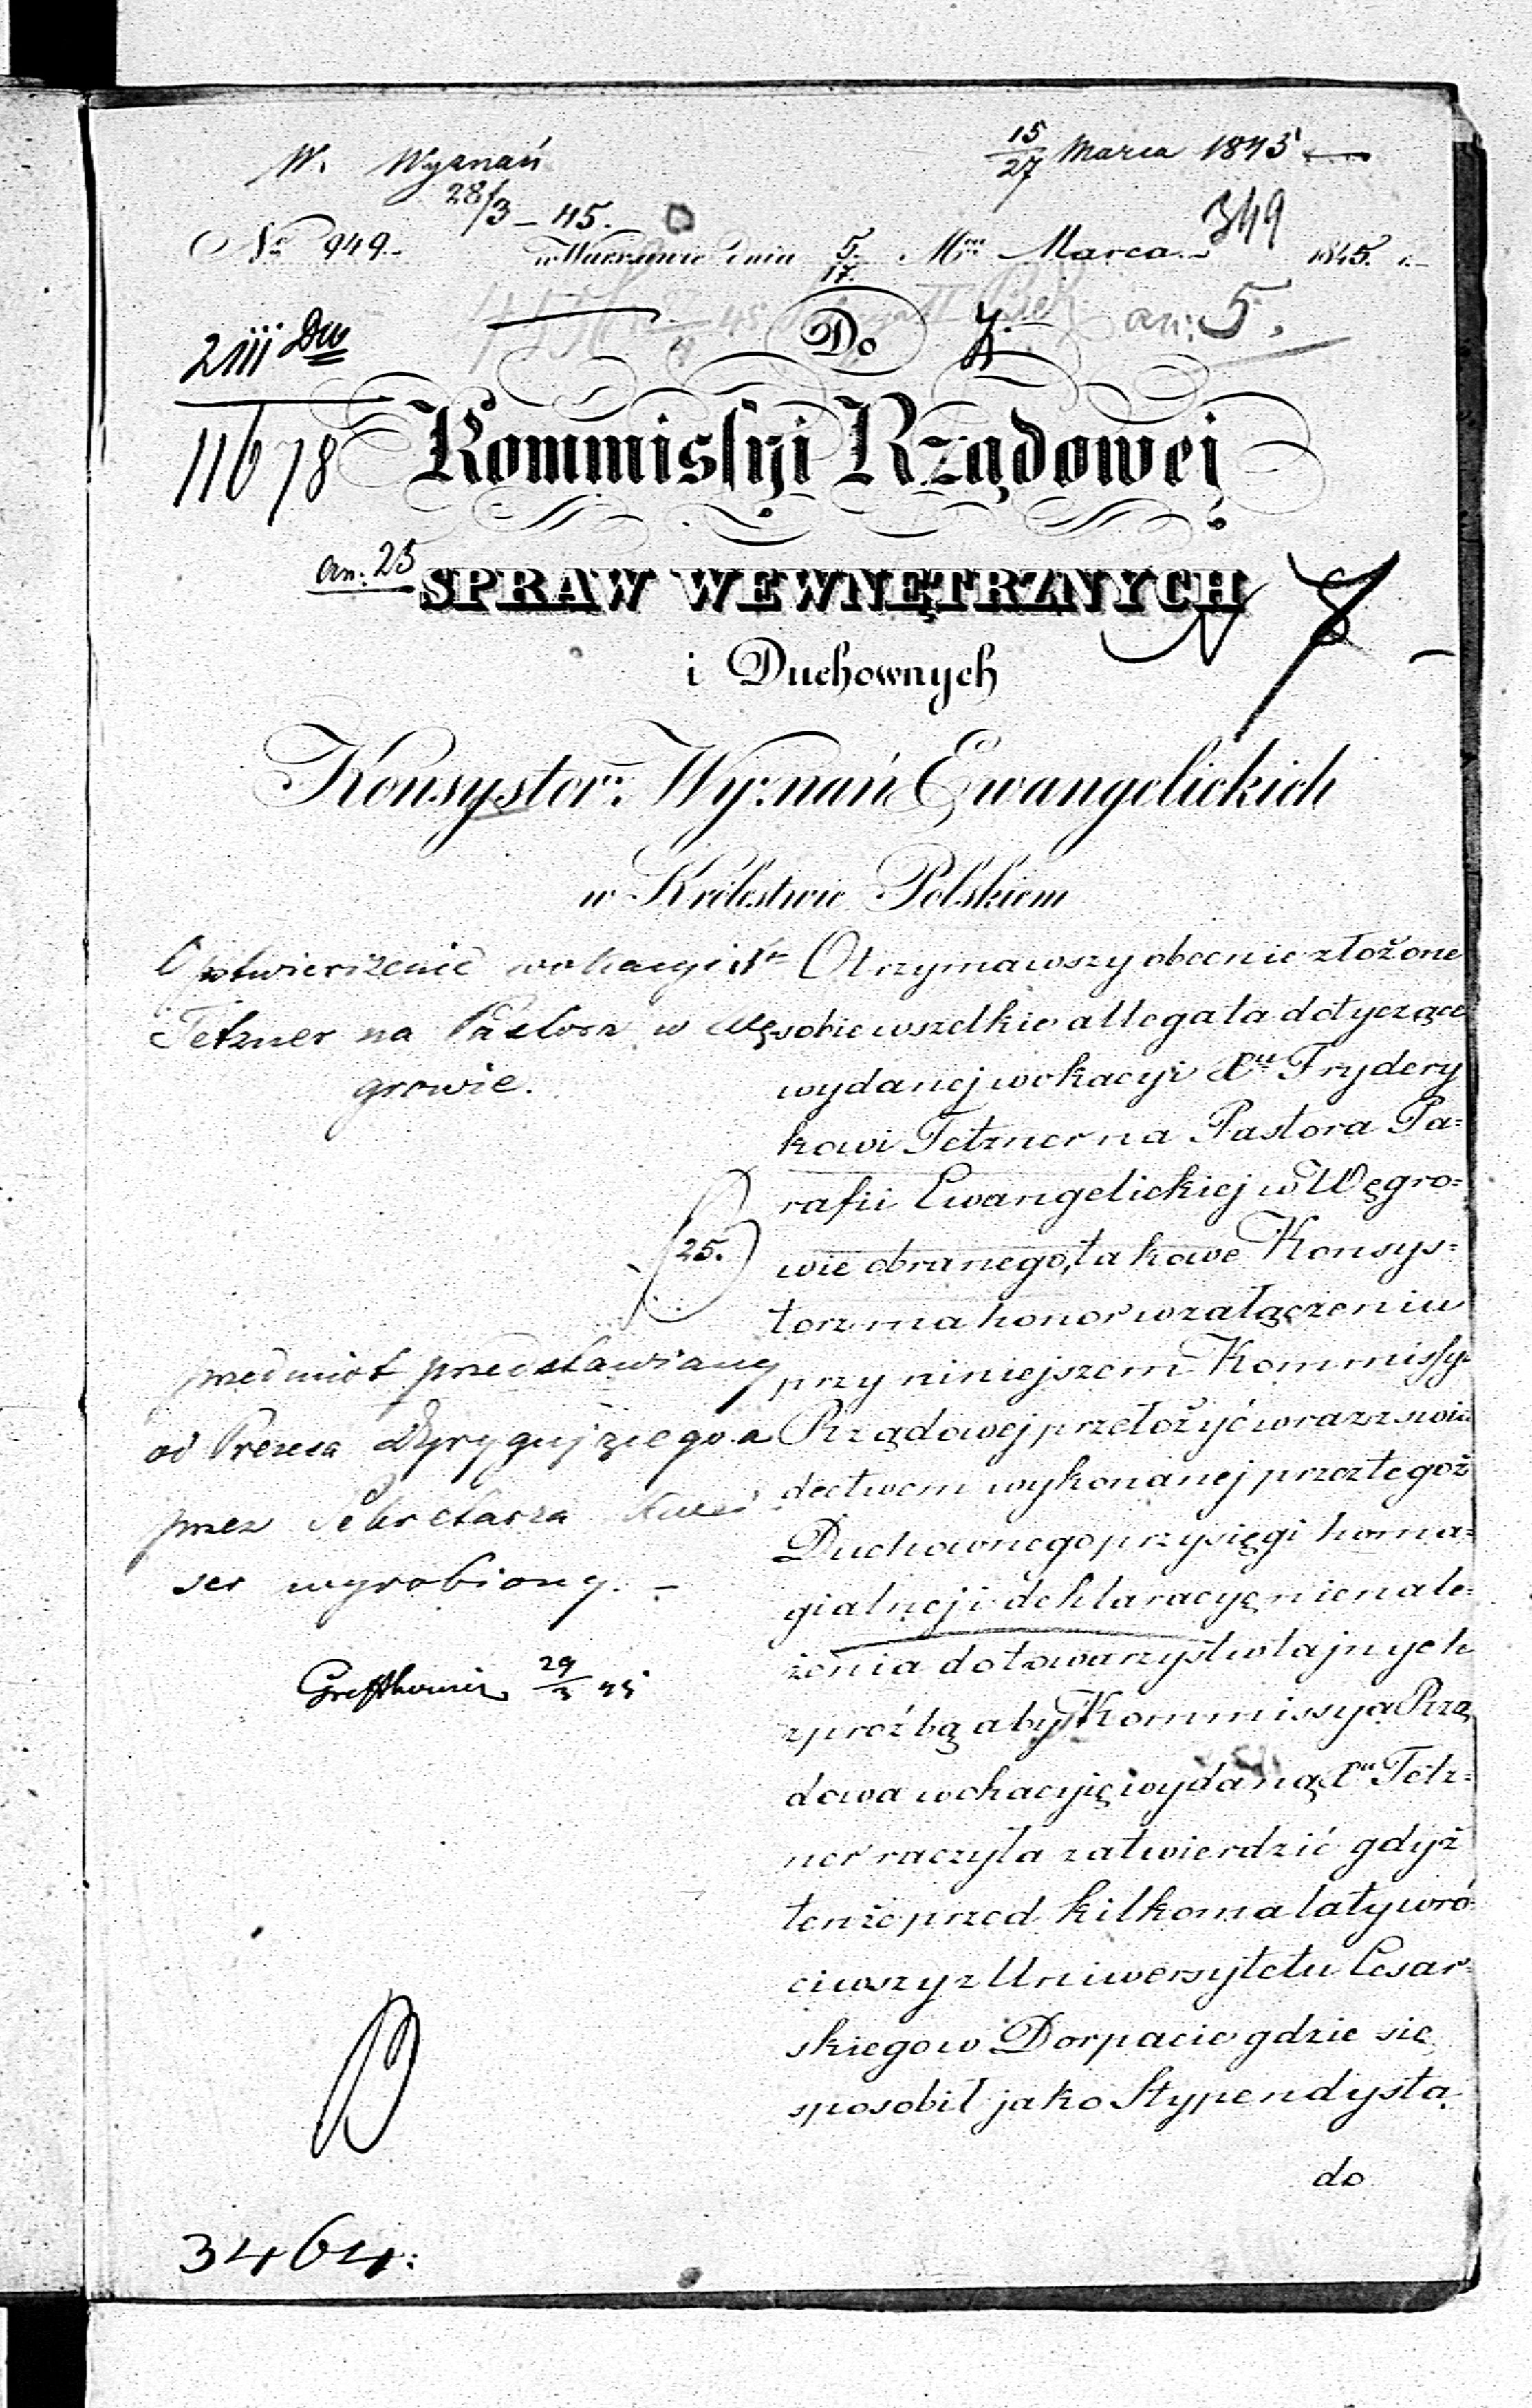 W. Wyznań
15/27 Marca 1845
28/3 – 45.
349
No 949. w Warszawie dnia 5/17. Mca Marca 1845. r.
an: 5.
2III Dw
Do
11678
Kommissyi Rządowej
an: 25
SPRAW WEWNĘTRZNYCH
i Duchownych
Konsystorz Wyznań Ewangelickich
w Królestwie Polskiem
O potwierdzenie wokacyi Xa
Tetzner na Pastora w Wę
growie.
Otrzymawszy obecnie złożone
sobie wszelkie allegata dotyczące
wydanej wokacyi Xu Frydery
kowi Tetzner na Pastora Pa=
rafii Ewangelickiej w Węgro=
wie obranego, takowe Konsys=
torz ma honor w załączeniu
przy niniejszem Kommissyi
Rządowej przełożyć wraz z świa
dectwem wykonanej przez tegoż
Duchownego przysięgi homa=
gialnej i deklaracyę nienale=
żenia do towarzystw tajnych
z proźbą aby Kommissya Rzą
dowa wokacyię wydaną Xu Tetz=
ner raczyła zatwierdzić gdyż
tenże przed kilkoma laty wró
ciwszy z Uniwersytetu Cesar=
skiego w Dorpacie gdzie się
sposobił jako Stypendysta
do
25.
przedmiot przedstawiany
od Prezesa Dyrygującego a
przez Sekretarza
wyrobiony. –
29/3 45
3464.